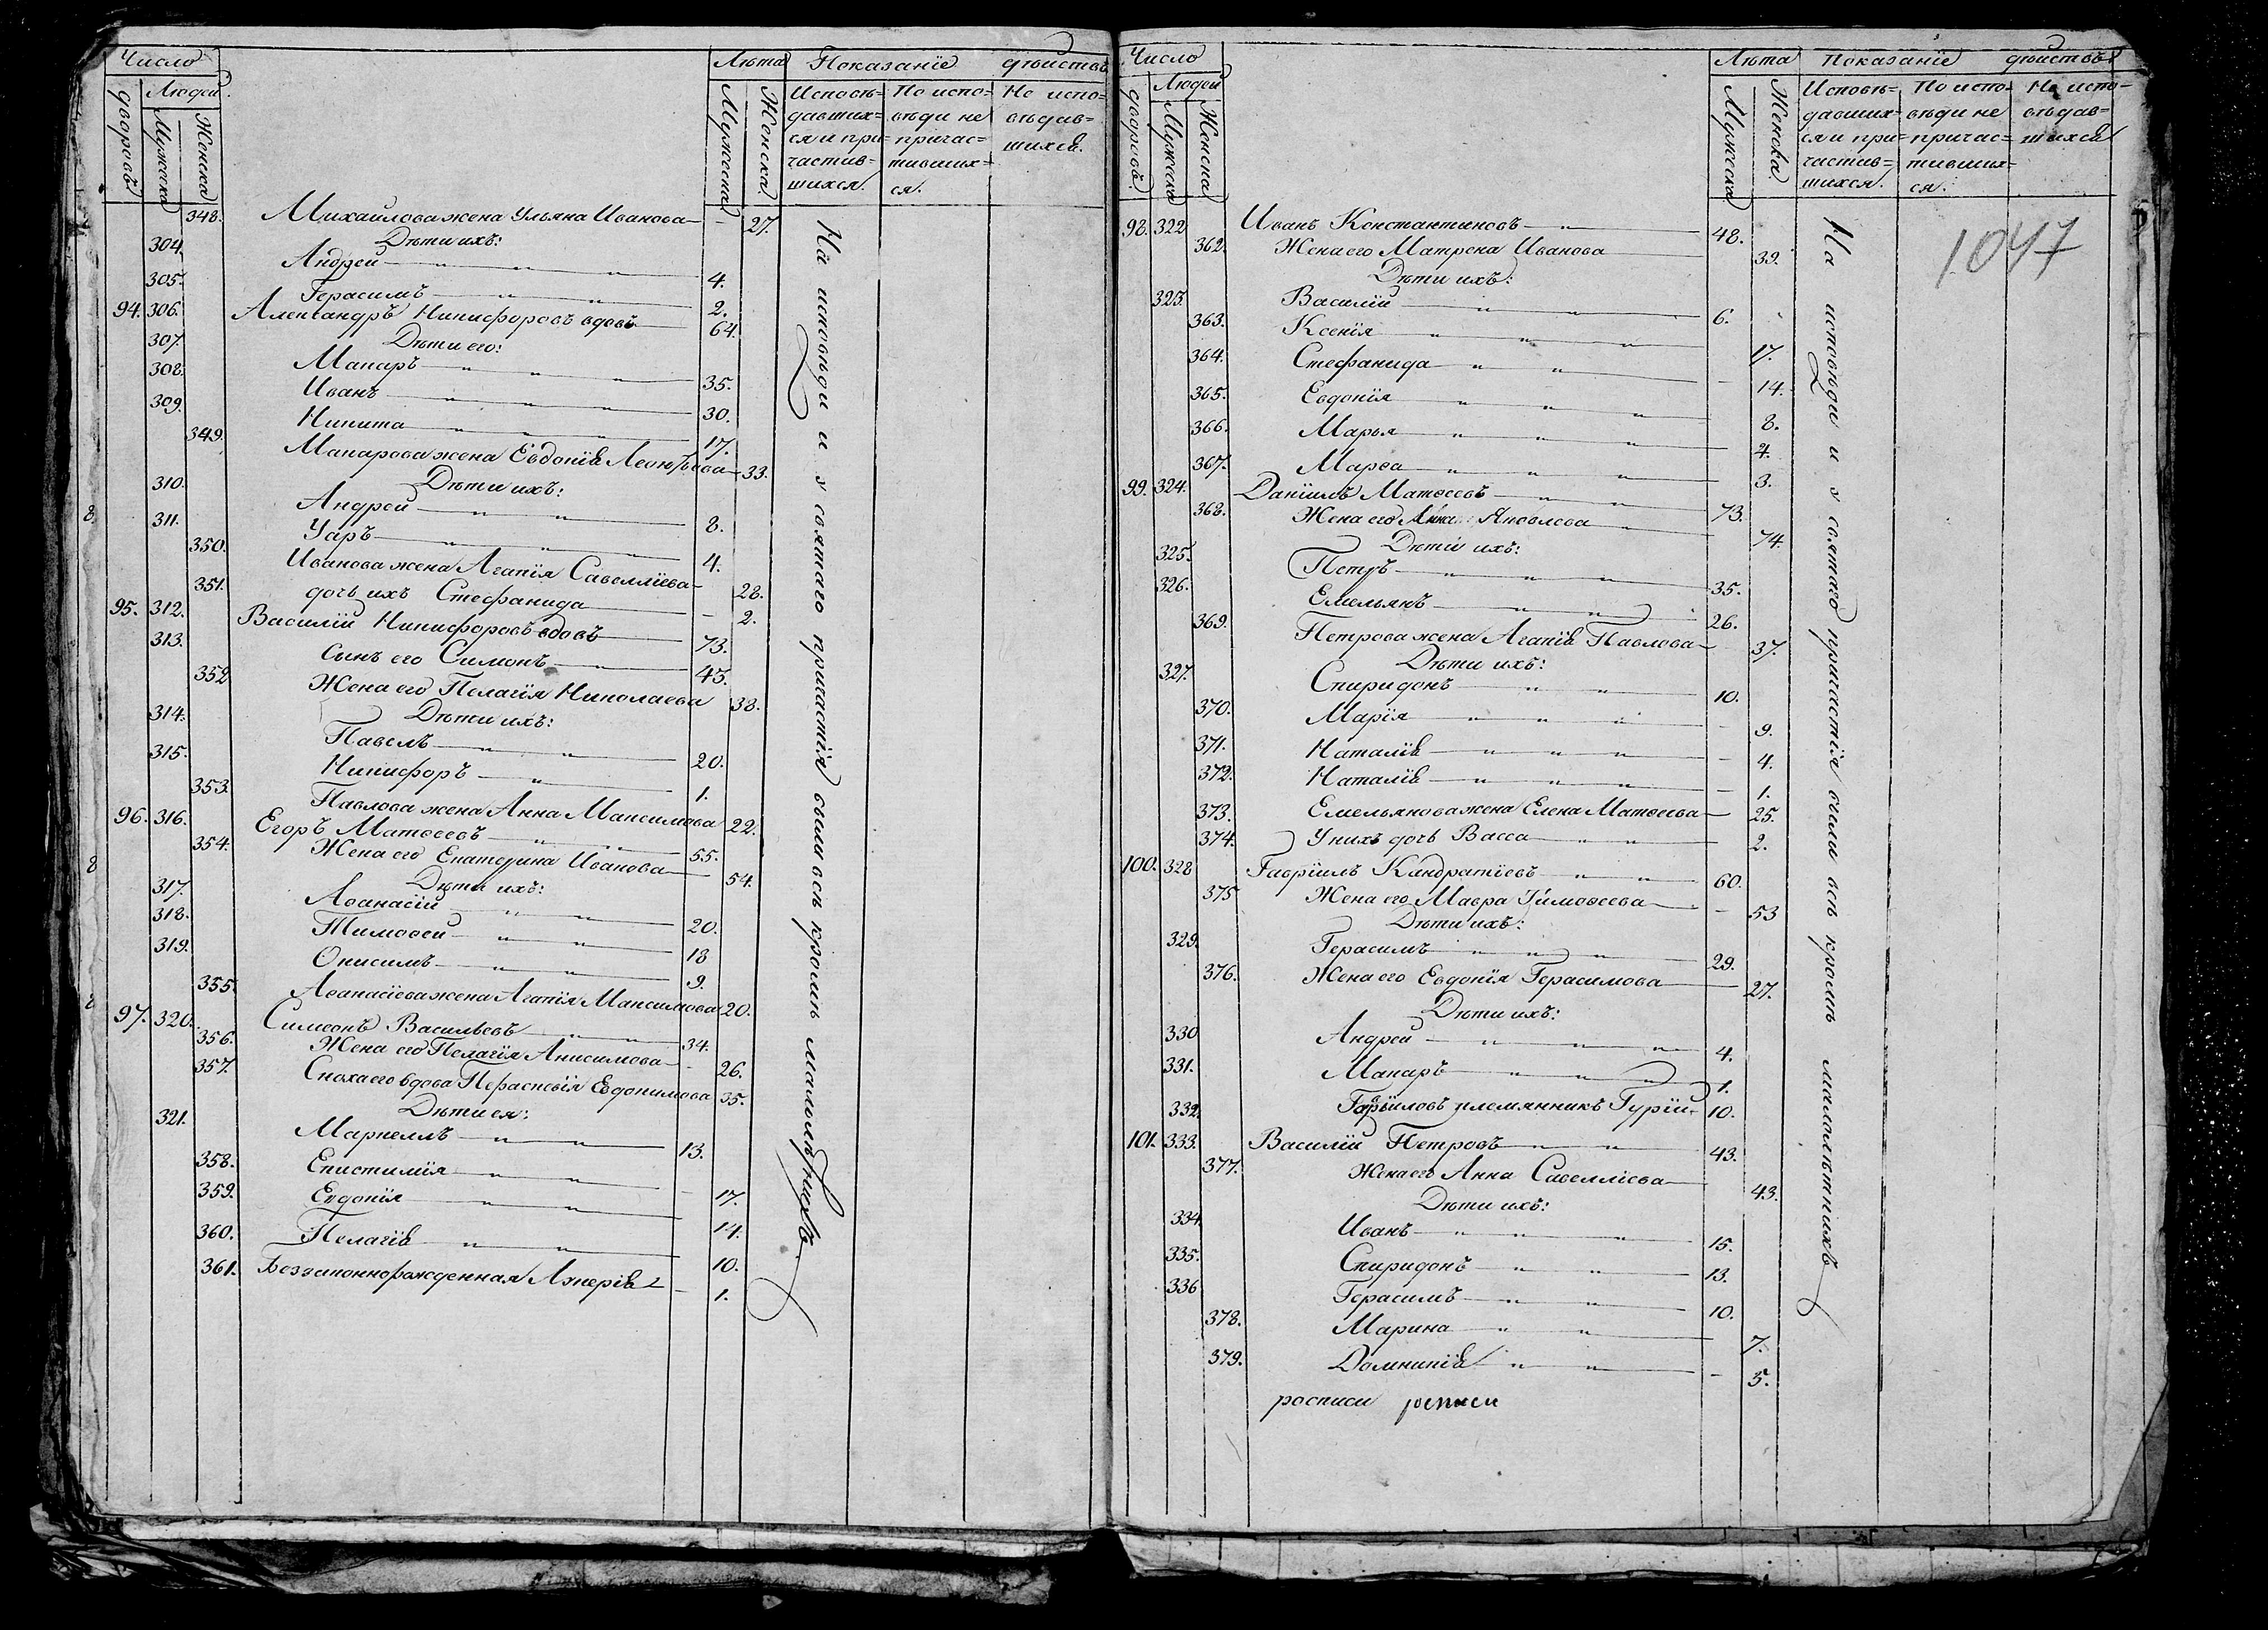 Число
Людей.
дворовъ.
Мужеска
Женска
Лѣта
Мужеска
Женска
Показаніе дѣйствъ
Исповѣ=
давших=
ся и при=
частив=
шихся.
По испо=
вѣди не
причас=
тивших=
ся.
Не испо=
вѣдав=
шихся.
348. Михайлова жена Ульяна Иванова — 27.
Дѣти ихъ:
304. Андрей 4.
305. Герасимъ 2.
94. 306. Александръ Никифоровъ вдовъ 64.
Дѣти его:
307. Макаръ 35.
308. Иванъ 30.
309. Никита 17.
349. Макарова жена Евдокія Леонтьева 33.
Дѣти ихъ:
310. Андрей 8.
311. Уаръ 4.
350. Иванова жена Агапія Савелліева 28.
351. дочь ихъ Стефанида — 2.
95. 312. Василій Никифоровъ вдовъ 73.
313. Сынъ его Симонъ 43.
352 Жена его Пелагія Николаева 38.
Дѣти ихъ:
314. Павелъ 20.
315. Никифоръ 1.
353. Павлова жена Анна Максимова 22.
96. 316. Егоръ Матѳеевъ 55.
354. Жена его Екатерина Иванова 54.
Дѣти ихъ:
317. Аѳанасій 20.
318. Тимоѳей 18
319. Онисимъ 9.
355. Аѳанасіева жена Агапія Максимова 20.
97. 320. Симеонъ Васильевъ 34.
356. Жена его Пелагія Анисимова — 26.
357. Сноха его вдова Параскевія Евдокимова 35.
Дѣти ея:
321. Маркеллъ 13.
358. Епистимія — 17.
359. Евдокія 14.
360. Пелагія 10.
361. Беззаконнорожденная Лукерія — 1.
На исповѣди и у святаго причастія были всѣ кромѣ малолѣтнихъ
Число
Людей
дворовъ.
Мужеска
Женска
Лѣта
Мужеска
Женска
Показаніе дѣйствъ
Исповѣ=
давших=
ся и при=
частив=
шихся.
По испо=
вѣди не
причас=
тивших=
ся.
Не испо=
вѣдав=
шихся
1047
98. 322 Иванъ Константиновъ 48.
362. Жена его Матрена Иванова 39.
Дѣти ихъ:
323. Василій 6.
363. Ксенія 17.
364. Стефанида — 14.
365. Евдокія 8.
366. Марья 4.
367. Марѳа 3.
99. 324. Даніилъ Матѳеевъ 73.
368. Жена его Анна Яковлева 74.
Дѣти ихъ:
325. Петръ 35.
326. Емельянъ 26.
369. Петрова жена Агапія Павлова 37.
Дѣти ихъ:
327. Спиридонъ 10.
370. Марія — 9.
371. Наталія — 4.
372. Наталія — 1.
373. Емельянова жена Елена Матѳеева 25.
374. У нихъ дочь Васса 2.
100. 328 Гавріилъ Кандратіевъ 60.
375 Жена его Мавра Тимоѳеева — 53
Дѣти ихъ:
329. Герасимъ 29.
376. Жена его Евдокія Герасимова 27.
Дѣти ихъ:
330 Андрей 4.
331. Макаръ 1.
332. Гавріиловъ племянникъ Гурій 10.
101. 333. Василій Петровъ 43.
377. Жена его Анна Савелліева 43.
Дѣти ихъ:
334. Иванъ 15.
335. Спиридонъ 13.
336 Герасимъ 10.
378. Марина 7.
379. Домникія — 5.
росписи росписи
На исповѣди и у святаго причастія были всѣ кромѣ малолѣтнихъ